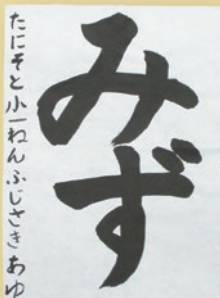 みず
たにそと小一ねんふじさきあゆ